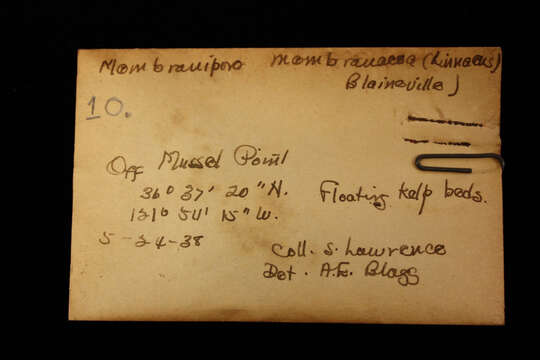 Membranipora membranacea (Linnaeus)
Blainville)
10.
Off Mussel Point
36° 37' 20" N.
Floating kelp beds.
121° 54' 15" W.
5-24-38
Coll. S. Lawrence
Det. A.E. Blagg